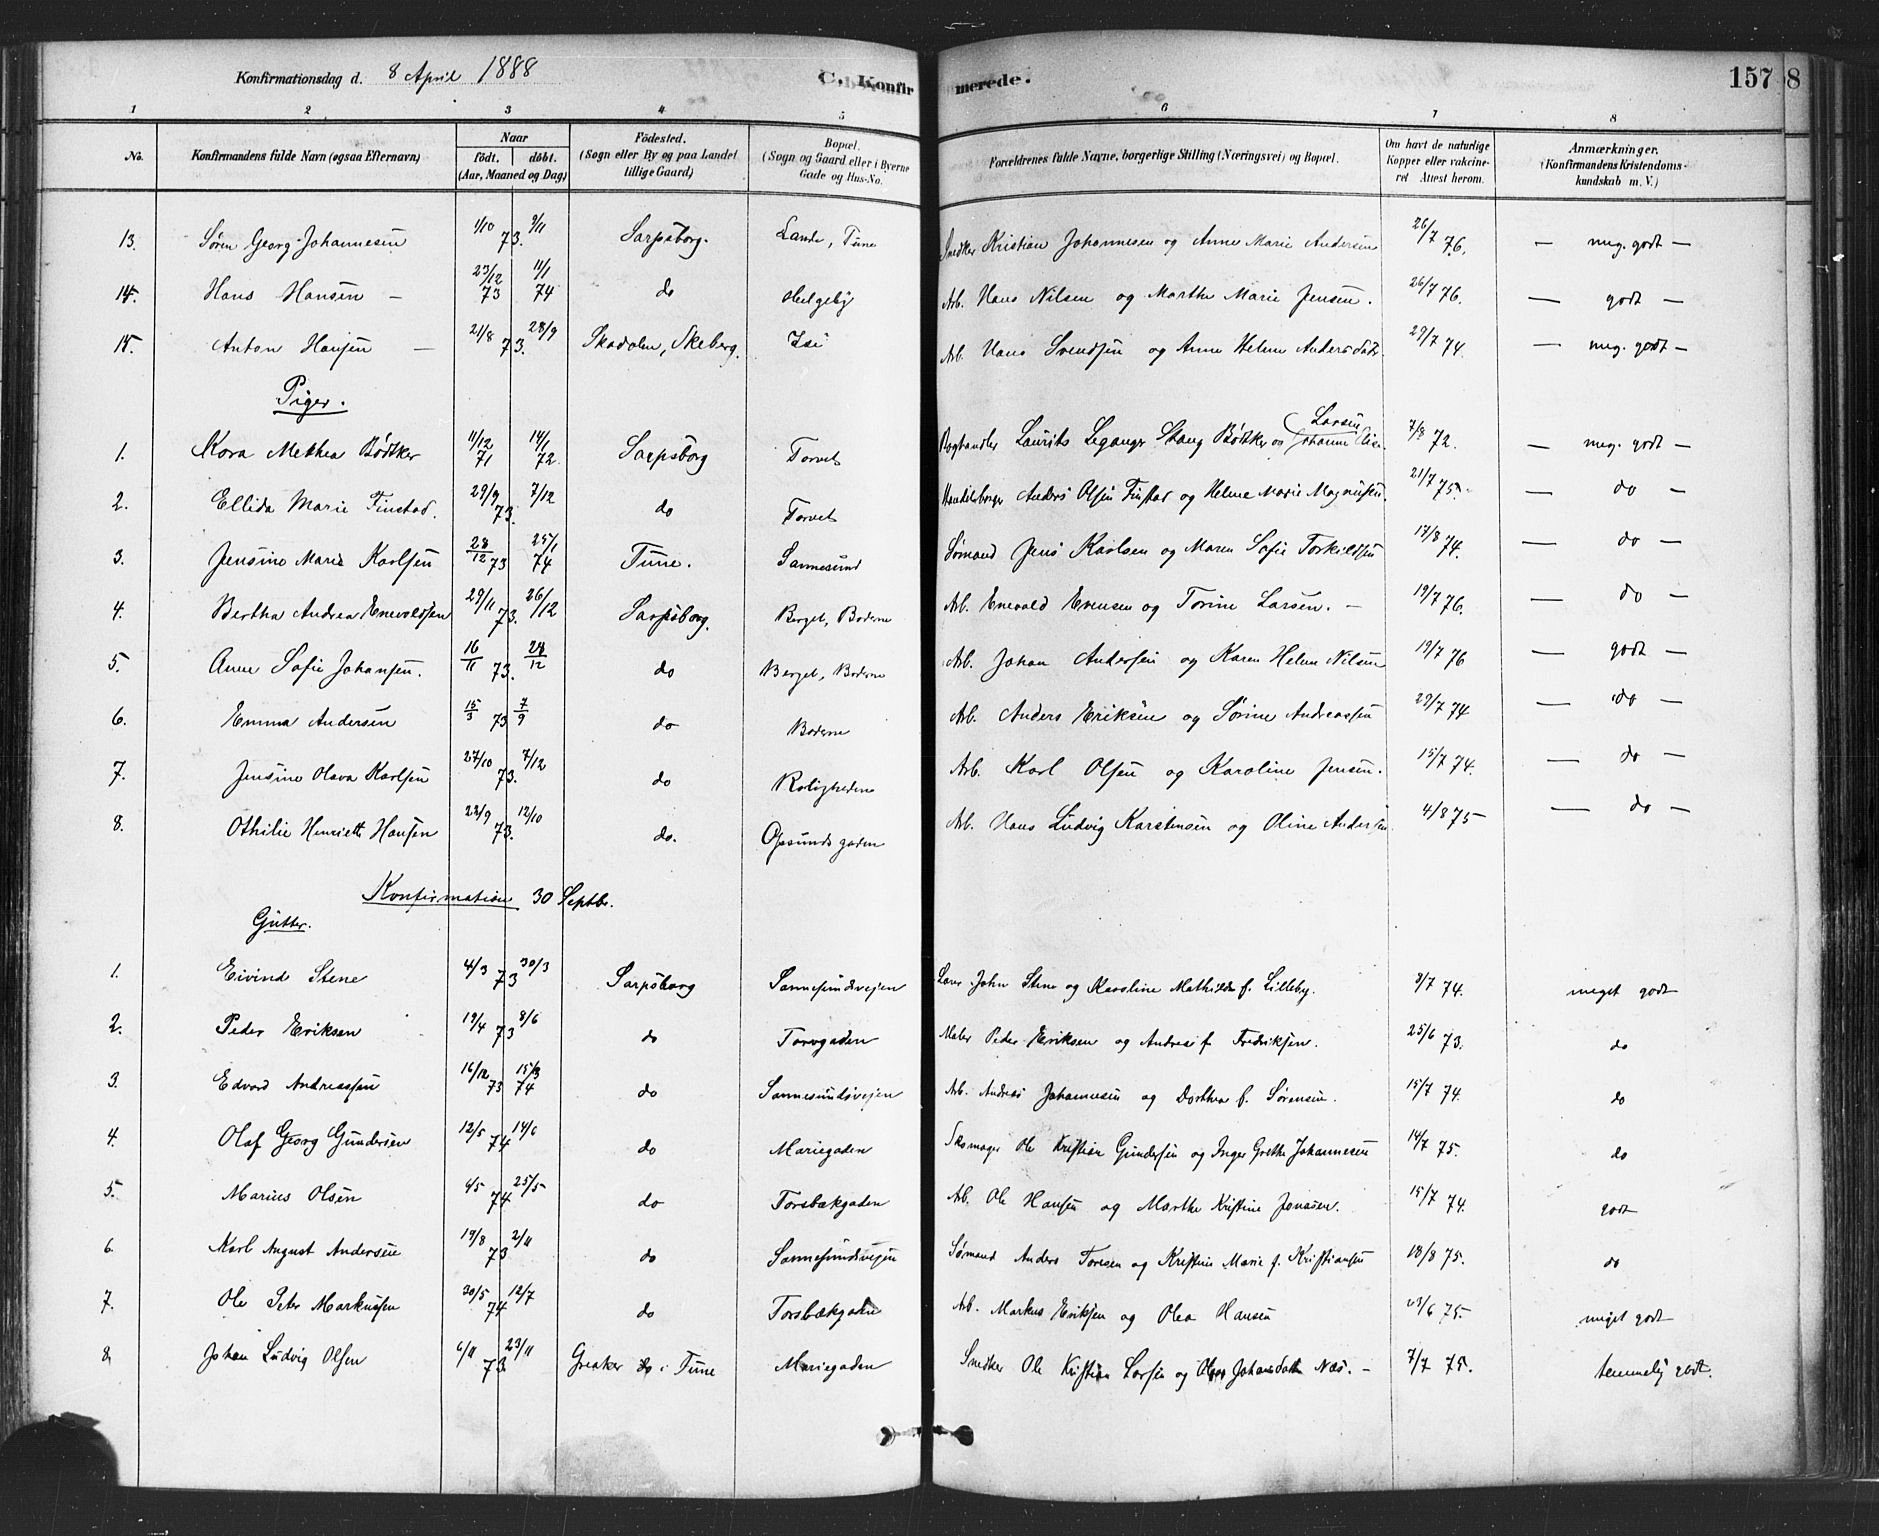 Konfirmationsdag d. 8 April 1888 C. Konfirmerede. 157 8
1 2 3 4 5 6 7 8
No. Konfirmandens fulde Navn (ogsaa Efternavn) Naar födt. döbt. (Aar, Maaned og Dag) Födested. (Sogn eller By og paa Landet tillige Gaard) Bopæl. (Sogn og Gaard eller i Byerne Gade og Hus-No. Forældrenes fulde Navne, borgerlige Stilling (Næringsvei) og Bopæl. Om havt de naturlige Kopper eller vakcineret Attest herom. Anmærkninger. (Konfirmandens Kristendomskundskab m. V.)
13. Sören Georg Johannesen 1/10 73. 9/11 Sarpsborg. Lande, Tune Snedker Kristian Johannesen og Anne Marie Andersen 26/7 76. — meg. godt —
14. Hans Hansen — 23/12 73 11/1 74 do Helgeby Arb. Hans Nilsen og Marthe Marie Jensen. 26/7 76. — godt —
15. Anton Hansen — 21/8 73. 28/9 Skadalen, Skeberg. Isi Arb. Hans Svendsen og Anne Helene Andersdatr. 29/7 74. — meg. godt —
Piger.
1. Kora Methea Bødtker 11/12 71 14/1 72 Sarpsborg Torvet Boghandler Laurits Legangr Stang Bødtker og Johanne Elise Larsen 7/8 72. — meg. godt —
2. Ellida Marie Finstad. 29/9 73. 7/12 do Torvet Handelsborger Anders Olsen Finstad og Helene Marie Magnussen. 21/7 75. — do —
3. Jensine Marie Karlsen 28/12 73 25/1 74 Tune. Sannesund Sømand Jens Karlsen og Maren Sofie Torkildsen 17/8 74. — do —
4. Bertha Andrea Enevoldsen 29/11 73. 26/12 Sarpsborg. Berget, Boderne Arb. Enevald Evensen og Torine Larsen. — 19/7 76. — do —
5. Anne Sofie Johansen. 16/11 73. 28/12 do Berget, Boderne Arb. Johan Andersen og Karen Helene Nilsen 19/7 76 — godt —
6. Emma Andersen 15/3 73 7/9 do Boderne Arb. Anders Eriksen og Sörine Andreassen 29/7 74 — do —
7. Jensine Olava Karlsen 27/10 73. 7/12 do Roligheden Arb. Karl Olsen og Karoline Jensen. 15/7 74. — do —
8. Othilie Henriette Hansen 22/9 73. 12/10 do. Opsundsgaden Arb. Hans Ludvig Karstensen og Oline Andersen 4/8 75 — do —
Konfirmation 30 Septbr.
Gutter.
1. Eivind Stene 4/3 73 30/3 Sarpsborg Sannesundsveien John Stene og Karoline Mathilde f. Lilleby. 8/7 74. meget godt
2. Peder Eriksen 19/4 73 8/6 do Torvgaden Maler Peder Eriksen og Andrea f. Fredriksen. 25/6 73. do
3. Edvard Andreassen 16/12 73 15/3 74 do Sannesundsvejen Arb. Andreas Johannesen og Dorthea f. Sørensen. 15/7 74. do
4. Olaf Georg Gundersen 12/5 74 14/6 do Mariegaden Skomager Ole Kristian Gundersen og Inger Grethe Johannesen 14/7 75. do
5. Marius Olsen 4/5 74 25/5 do Torsbækgaden Arb. Ole Hansen og Marthe Kristine Jonasen. 15/7 74. godt
6. Karl August Andersen 19/8 73 2/11 do Sannesundsvejen Sømand Anders Toresen og Kristine Marie f. Kristiansen 18/8 75. do
7. Ole Peter Markussen 30/5 74 12/7 do Torsbækgaden Arb. Markus Eriksen og Olea Hansen 23/6 75. meget godt
8 Johan Ludvig Olsen 6/11 73 23/11 Greaker i Tune Mariegaden Snedker Ole Kristian Larsen og Johansdatter Næs. — 7/7 75. temmelig godt.